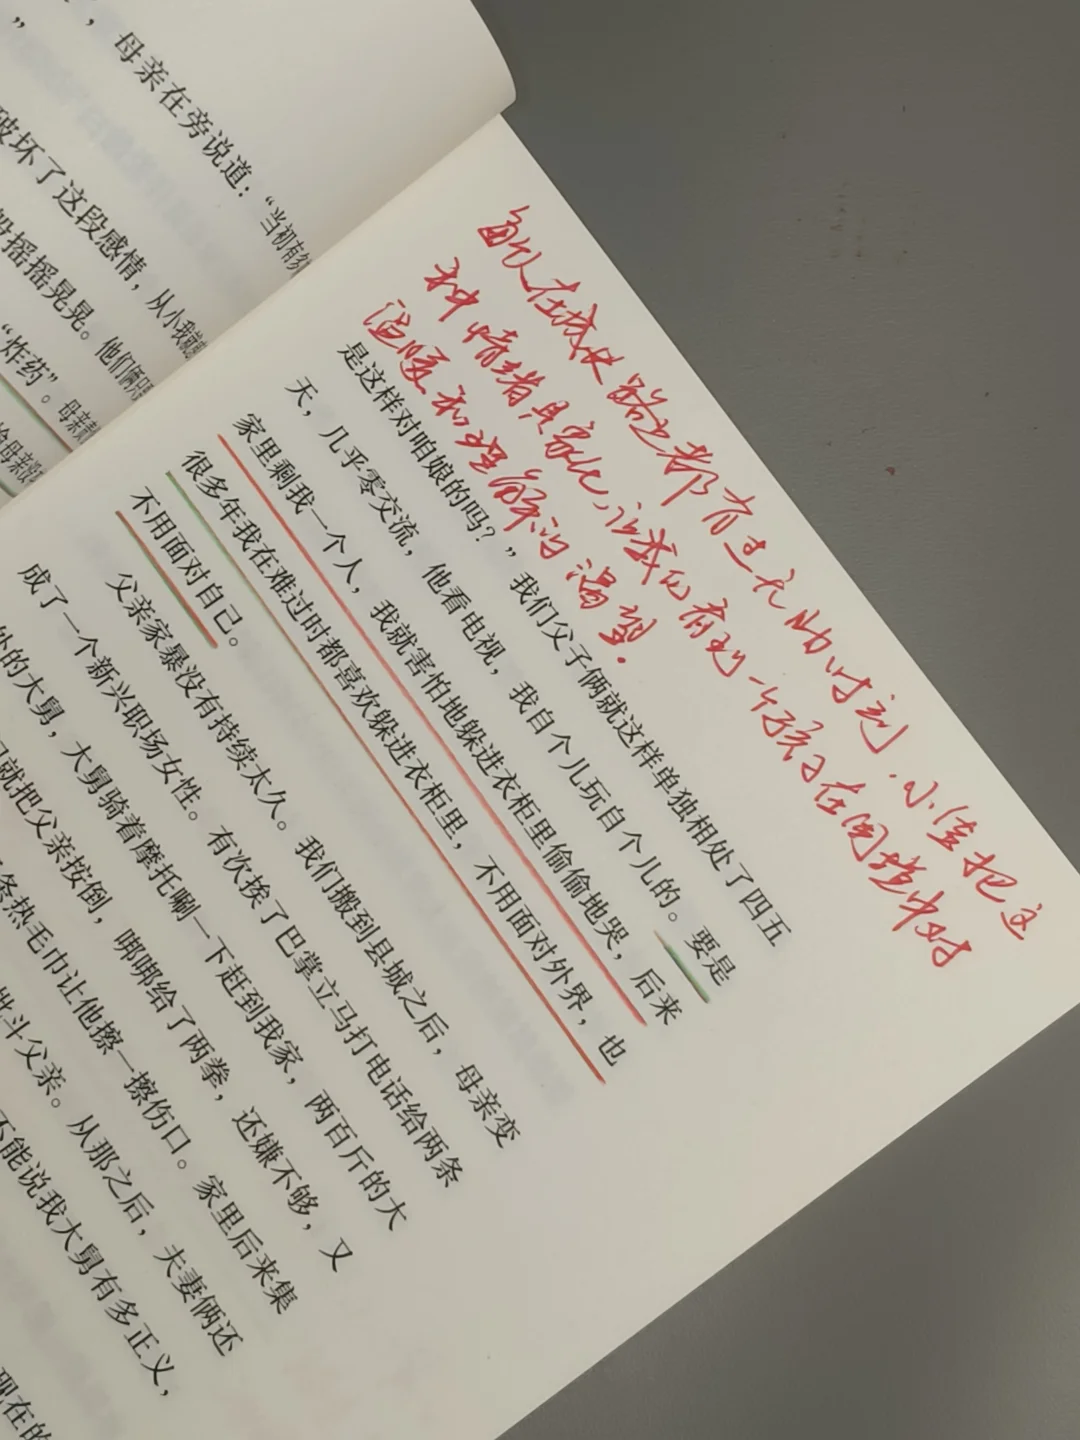 ”
，母亲在旁说道：“当初有多
破坏了这段感情，从小我就
般摇摇晃晃。他们俩只
“炸药”。母亲
给母亲
每个人在成长路上都有过无助时刻.小佳把这
种情绪具象化,让我们看到一个孩子在困境中对
温暖和理解的渴望.
是这样对咱娘的吗？”我们父子俩就这样单独相处了四五
天，几乎零交流，他看电视，我自个儿玩自个儿的。要是
家里剩我一个人，我就害怕地躲进衣柜里偷偷地哭，后来
很多年我在难过时都喜欢躲进衣柜里，不用面对外界，也
不用面对自己。
父亲家暴没有持续太久。我们搬到县城之后，母亲变
成了一个新兴职场女性。有次挨了巴掌立马打电话给两条
外的大舅，大舅骑着摩托唰一下赶到我家，两百斤的大
就把父亲按倒，哪哪给了两拳，还嫌不够，又
条热毛巾让他擦一擦伤口。家里后来集
批斗父亲。从那之后，夫妻俩还
不能说我大舅有多正义，
现在的